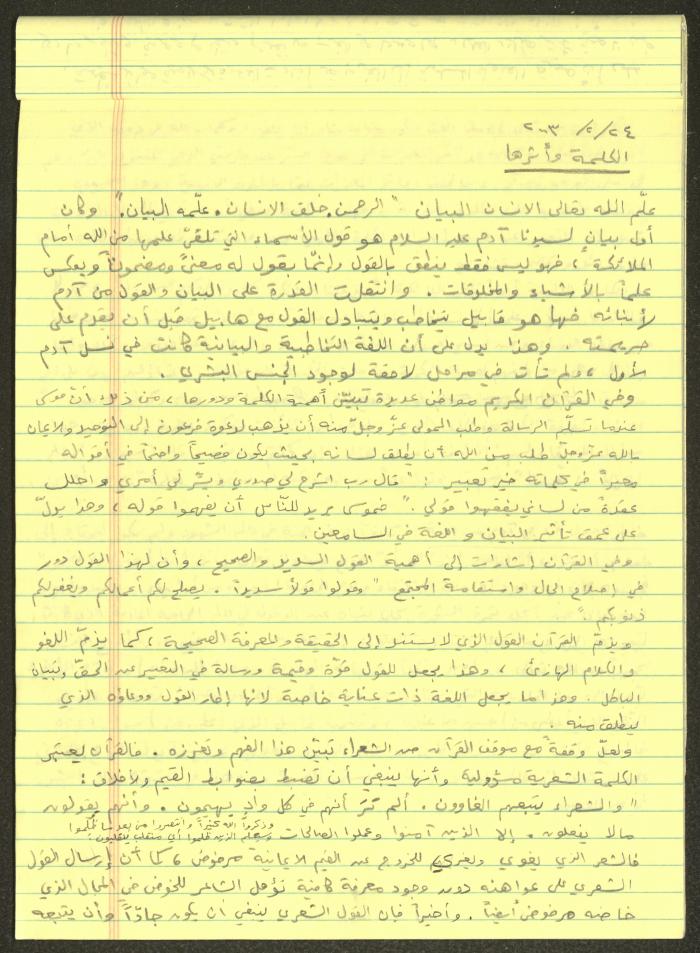 ٢٤/ ٢/ ٢٠٠٣
الكلمة وأثرها
علّم الله تعالى الانسان البيان "الرحمن. خلق الانسان. علّمه البيان." وكان
أول بيان لسيدنا آدم عليه السلام هو قول الأسماء التي تلقى علمها من الله أمام
الملائكة، فهو ليس فقط ينطق بالقول وانّما بقول له معنىً ومضموناً ويعكس
علماً بالأشياء والمخلوقات. وانتقلت القدرة على البيان والقول من آدم
لأبنائه فها هو قابيل يتخاطب ويتبادل القول مع هابيل قبل أن يقدم على
جريمته. وهذا يدل على أن اللغة التخاطبية والبيانية كانت في نسل آدم
الأول، ولم تأت في مراحل لاحقة لوجود الجنس البشري.
وفي القرآن الكريم مواطن عديدة تبيّن أهمية الكلمة ودورها، من ذلك أنّ موسى
عندما تسلّم الرسالة وطلب المولى عزّ وجلّ منه أن يذهب لدعوة فرعون إلى التوحيد والايمان
بالله عزّ وجلّ طلب من الله أن يطلق لسانه بحيث يكون فصيحاً واضحاً في أقواله
معبراً في كلماته خير تعبير: "قال رب اشرح لي صدري ويسّر لي أمري واحلل
عقدة من لساني يفقهوا قولي." فموسى يريد للنّاس أن يفهموا قوله، وهذا يدلّ
على عمق تأثير البيان واللغة في السامعين.
وفي القرآن إشارات إلى أهمية القول السديد والصحيح، وأن لهذا القول دور
في إصلاح الحال واستقامة المجتمع "وقولوا قولاً سديداً. يصلح لكم أعمالكم ويغفر لكم
ذنوبكم."
ويذمّ القرآن القول الذي لا يستند إلى الحقيقة والمعرفة الصحيحة، كما يذمّ اللغو
والكلام الهازئ، وهذا يجعل للقول قوّة وقيمة ورسالة في التعبير عن الحقّ وتبيان
الباطل. وهذا ما يجعل اللغة ذات عناية خاصة لانها إطار القول ووعاؤه الذي
ينطلق منه.
ولعلّ وقفةً مع موقف القرآن من الشعراء تبيّن هذا الفهم وتعززه. فالقرآن يعتبر
الكلمة الشعرية مسؤولية وأنها ينبغي أن تضبط بضوابط القيم والأخلاق:
"والشعراء يتبعهم الغاوون. ألم ترَ أنهم في كل وادٍ يهيمون. وأنهم يقولون
مالا يفعلون. إلا الذين آمنوا وعملوا الصالحات وذكروا الله كثيراً وانتصروا من بعد ما ظُلموا
وسيعلم الذين ظلموا أيّ منقلب ينقلبون."
فالشعر الذي يغوي ويغري للخروج عن القيم الايمانية مرفوض، كما أن إرسال القول
الشعري على عواهنه دون وجود معرفة كافية تؤهل الشاعر للخوض في المجال الذي
خاضه مرفوض أيضاً. وأخيراً فإن القول الشعري ينبغي أن يكون جادّاً وأن يتبعه